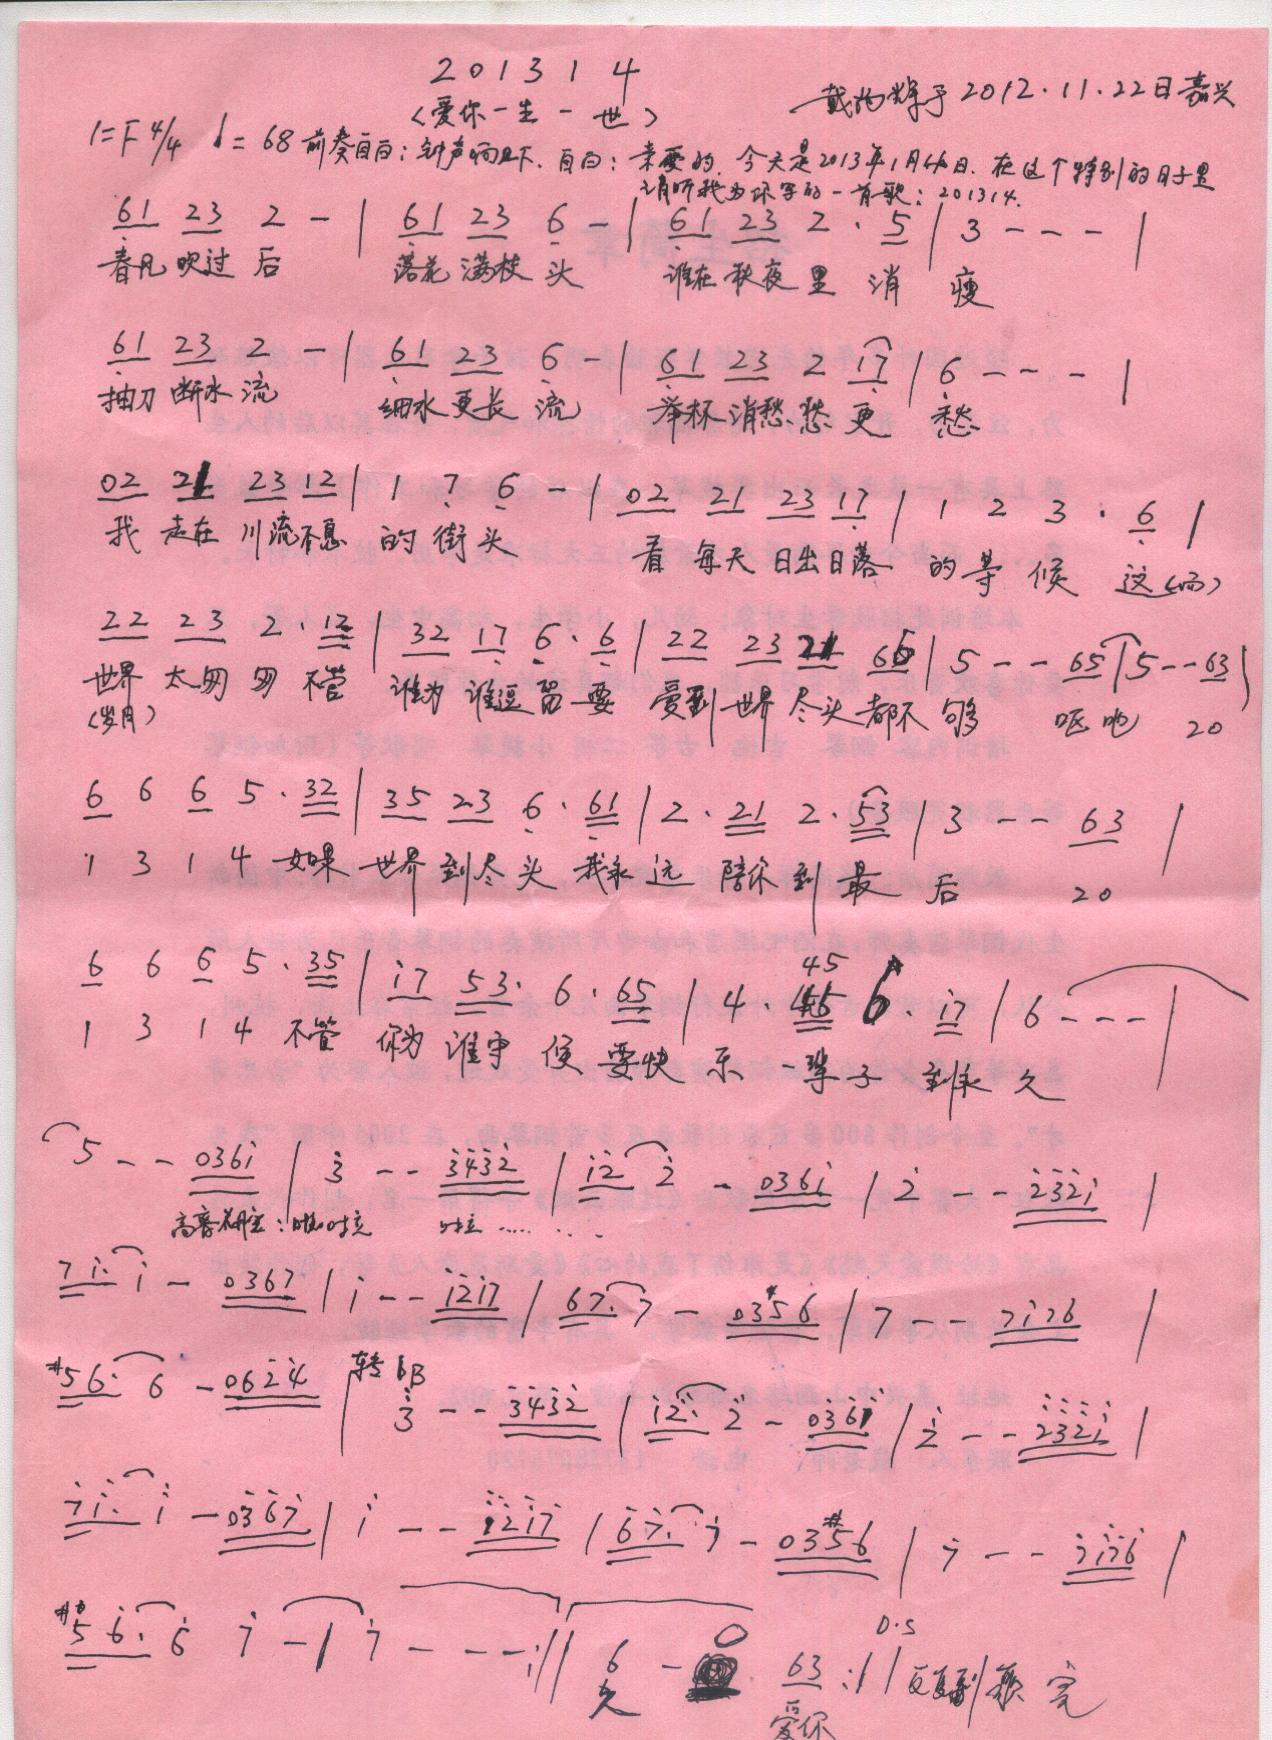 201314
(爱你一生一世)
于2012.11.22日嘉兴
1=F 4/4 ♩=68 前奏自白：钟声响四下. 自白：亲爱的, 今天是2013年1月4日. 在这个特别的日子里
请听我为你写的一首歌：201314.
61 23 2 - | 61 23 6 - | 61 23 2 · 5 | 3 - - - |
春风吹过后 落花满枝头 谁在秋夜里消瘦
61 23 2 - | 61 23 6 - | 61 23 2 17 | 6 - - - |
抽刀断水流 细水更长流 举杯消愁愁更愁
02 21 23 12 | 1 7 6 - | 02 21 23 17 | 1 2 3 · 6 |
我走在川流不息的街头 看每天日出日落的等候 这(而)
22 23 2 · 12 | 32 17 6 · 6 | 22 23 21 66 | 5 - - 65 | 5 - - 63 |
世界太匆匆 不管谁为谁逗留 要爱到世界尽头都不够 呃吔 20
(岁月)
6 6 6 5 · 32 | 35 23 6 · 61 | 2 · 21 2 · 53 | 3 - - 63 |
1 3 1 4 如果世界到尽头 我永远陪你到最后 20
6 6 6 5 · 35 | i7 53 · 6 · 65 | 4 · 45 6 · i7 | 6 - - - |
1 3 1 4 不管你为谁守候 要快乐一辈子到永久
5 - - 036i | 3 - - 3432 | i2 2 - 036i | 2 - - 232i |
7i· i - 0367 | i - - i2i7 | 67· 7 - 03#56 | 7 - - 7i76 |
#56· 6 - 0624 | 转bB 3 - - 3432 | i2· 2 - 036i | 2 - - 232i |
7i· i - 0367 | i - - i2i7 | 67· 7 - 03#56 | 7 - - 7i76 |
#56· 6 7 - | 7 - - - :|| 6 - 0 63 :|| D.S 反复到 完
久 爱你